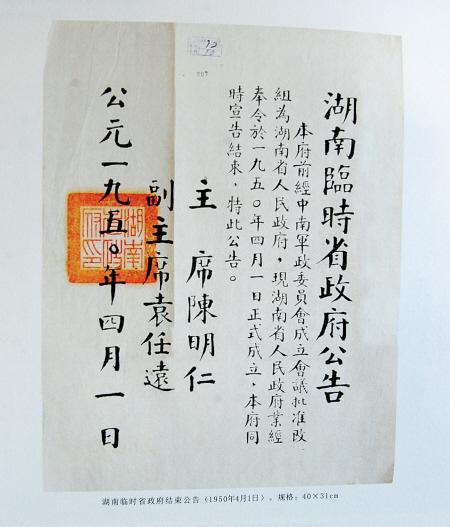 湖南臨時省政府公告
本府前經中南軍政委員會成立會議批准改
組為湖南省人民政府，現湖南省人民政府業經
奉令於一九五〇年四月一日正式成立，本府同
時宣告結束，特此公告。
主 席陳明仁
副主席袁任遠
公元一九五〇年四月一日
湖南临时省政府结束公告（1950年4月1日）。规格：40×31cm